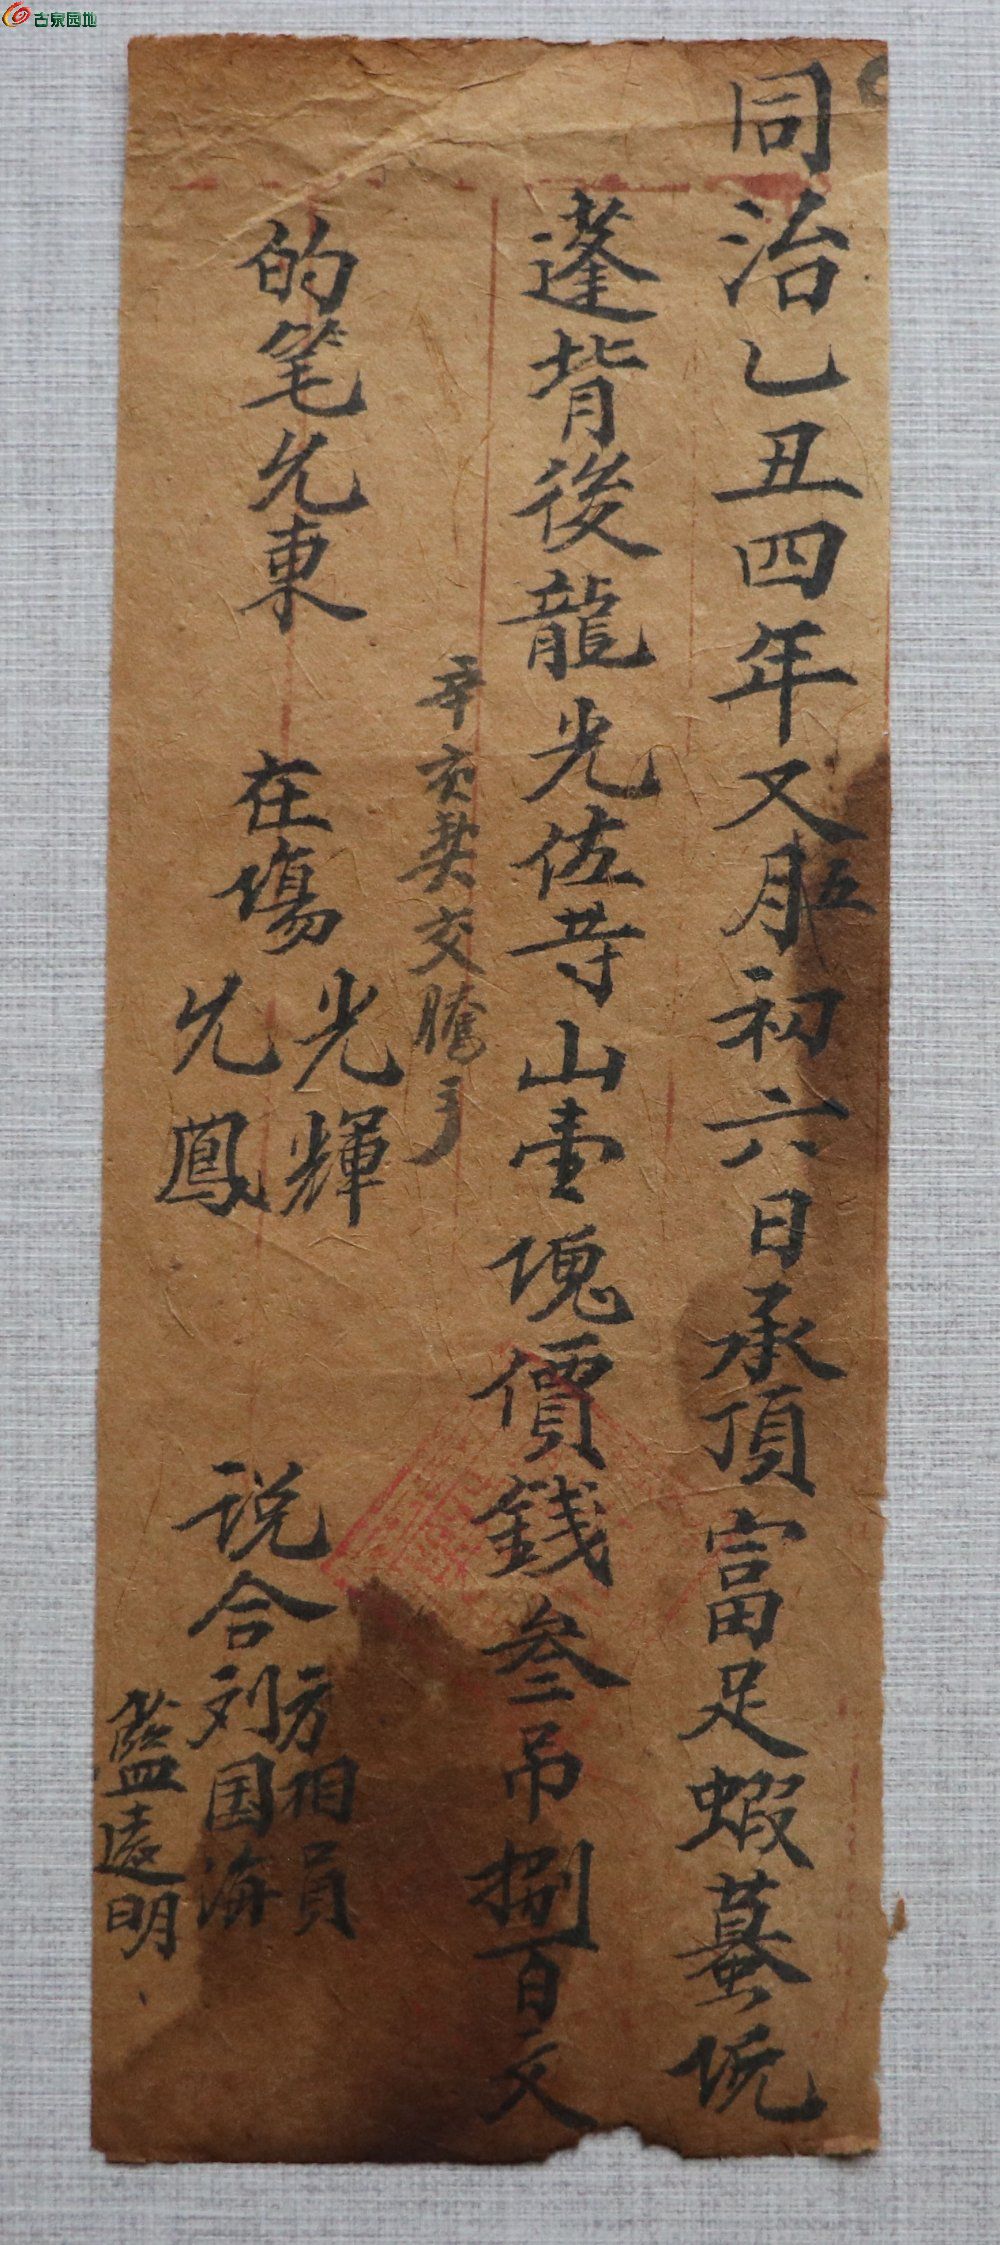 古泉园地
同治乙丑四年又五月初六日承頂富足蝦蟇坑
蓬背後龍光佐等山壹塊價錢叁吊捌百文
辛亥契交騰手
的笔允東 在塲 光輝
允鳳
说合 方相員
刘国海
藍遠明